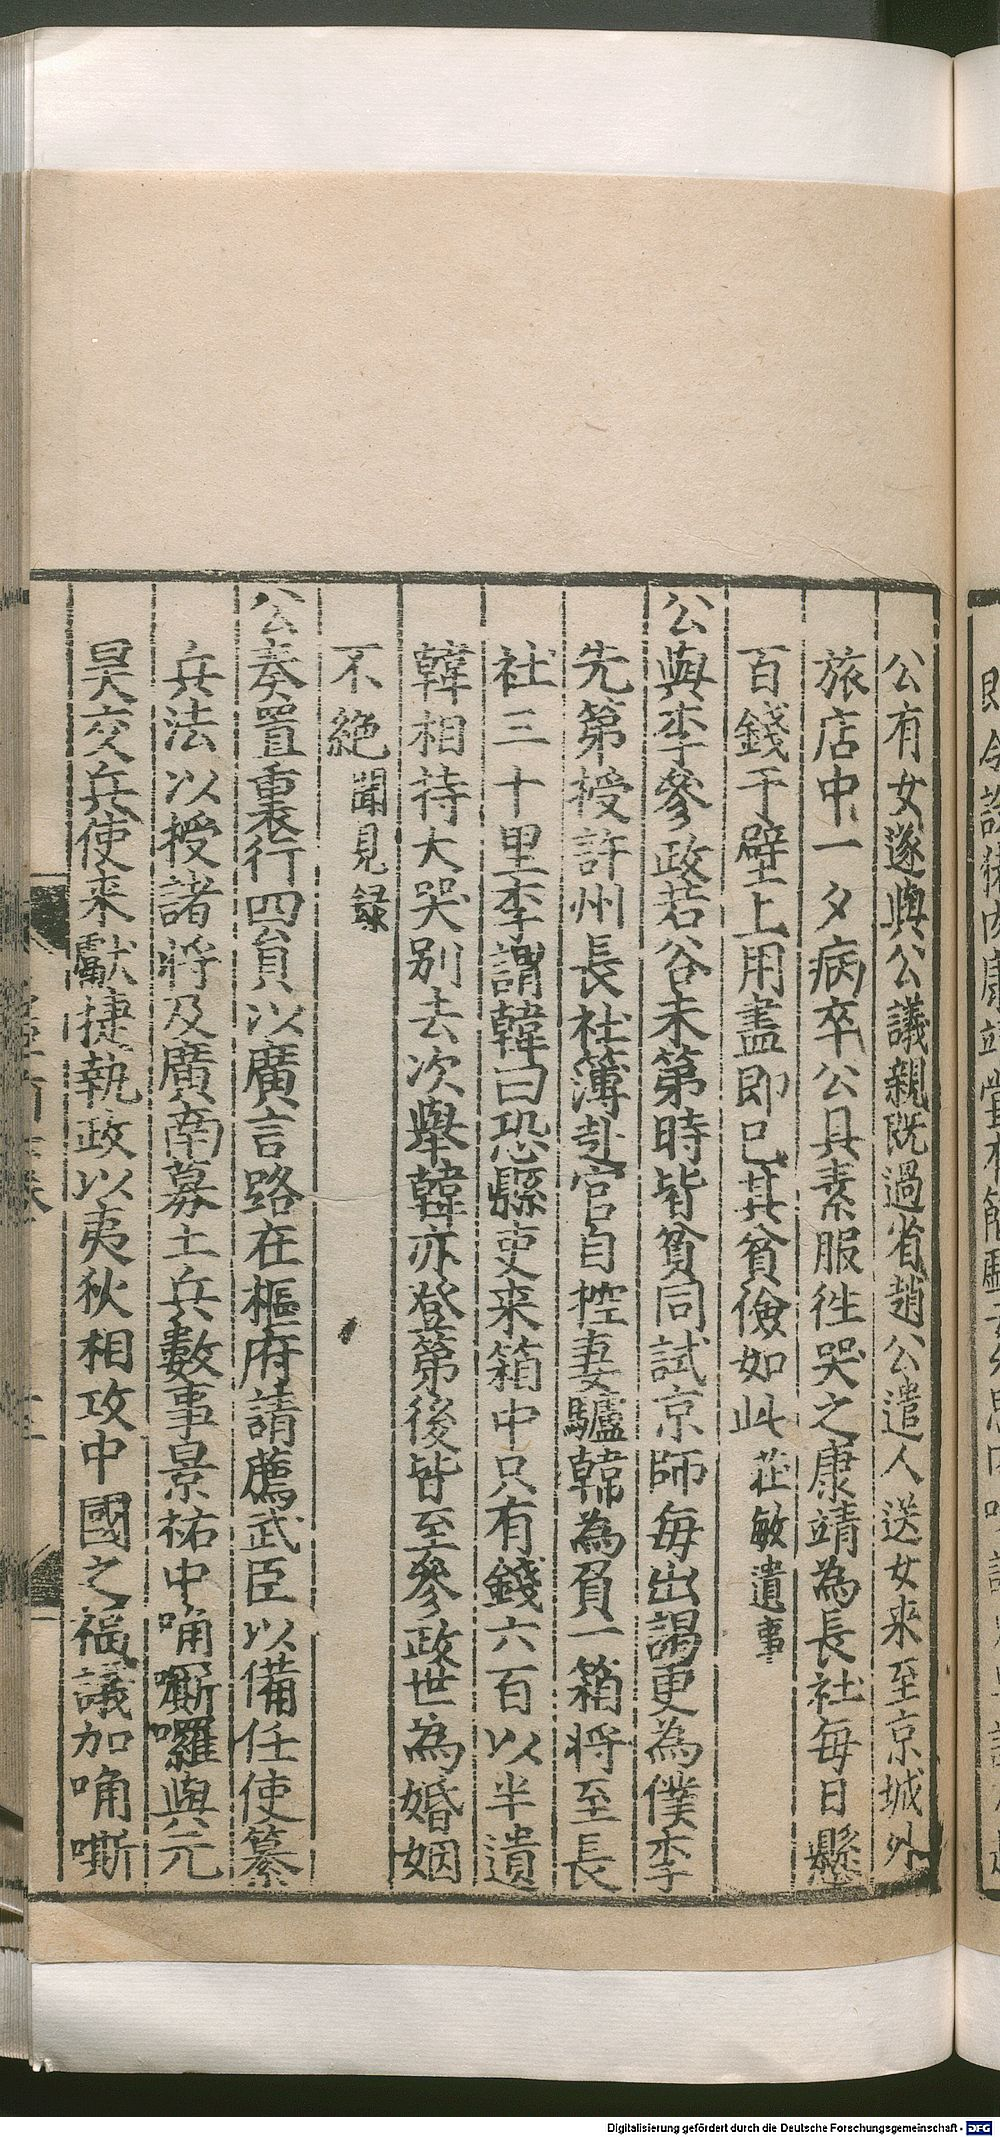 公有女遂與公議親既過省趙公遣人送女来至京城外
旅店中一夕病卒公具素服徃哭之康靖為長社每日懸
百錢于壁上用盡即已其貧儉如此莊敏遺事
公與李參政若谷未第時皆貧同試京師每出謁更為僕李
先第授許州長社簿赴官自控妻驢韓為負一箱將至長
社三十里李謂韓曰恐縣吏来箱中只有錢六百以半遺
韓相待大哭别去次舉韓亦登第後皆至參政世為婚姻
不絶聞見録
公奏置重裏行四負以廣言路在樞府請薦武臣以備任使纂
兵法以授諸將及廣南募土兵數事景祐中唃嘶囉與元
昊交兵使来獻捷執政以夷狄相攻中國之福議加唃嘶
Digitalisierung gefördert durch die Deutsche Forschungsgemeinschaft - DFG